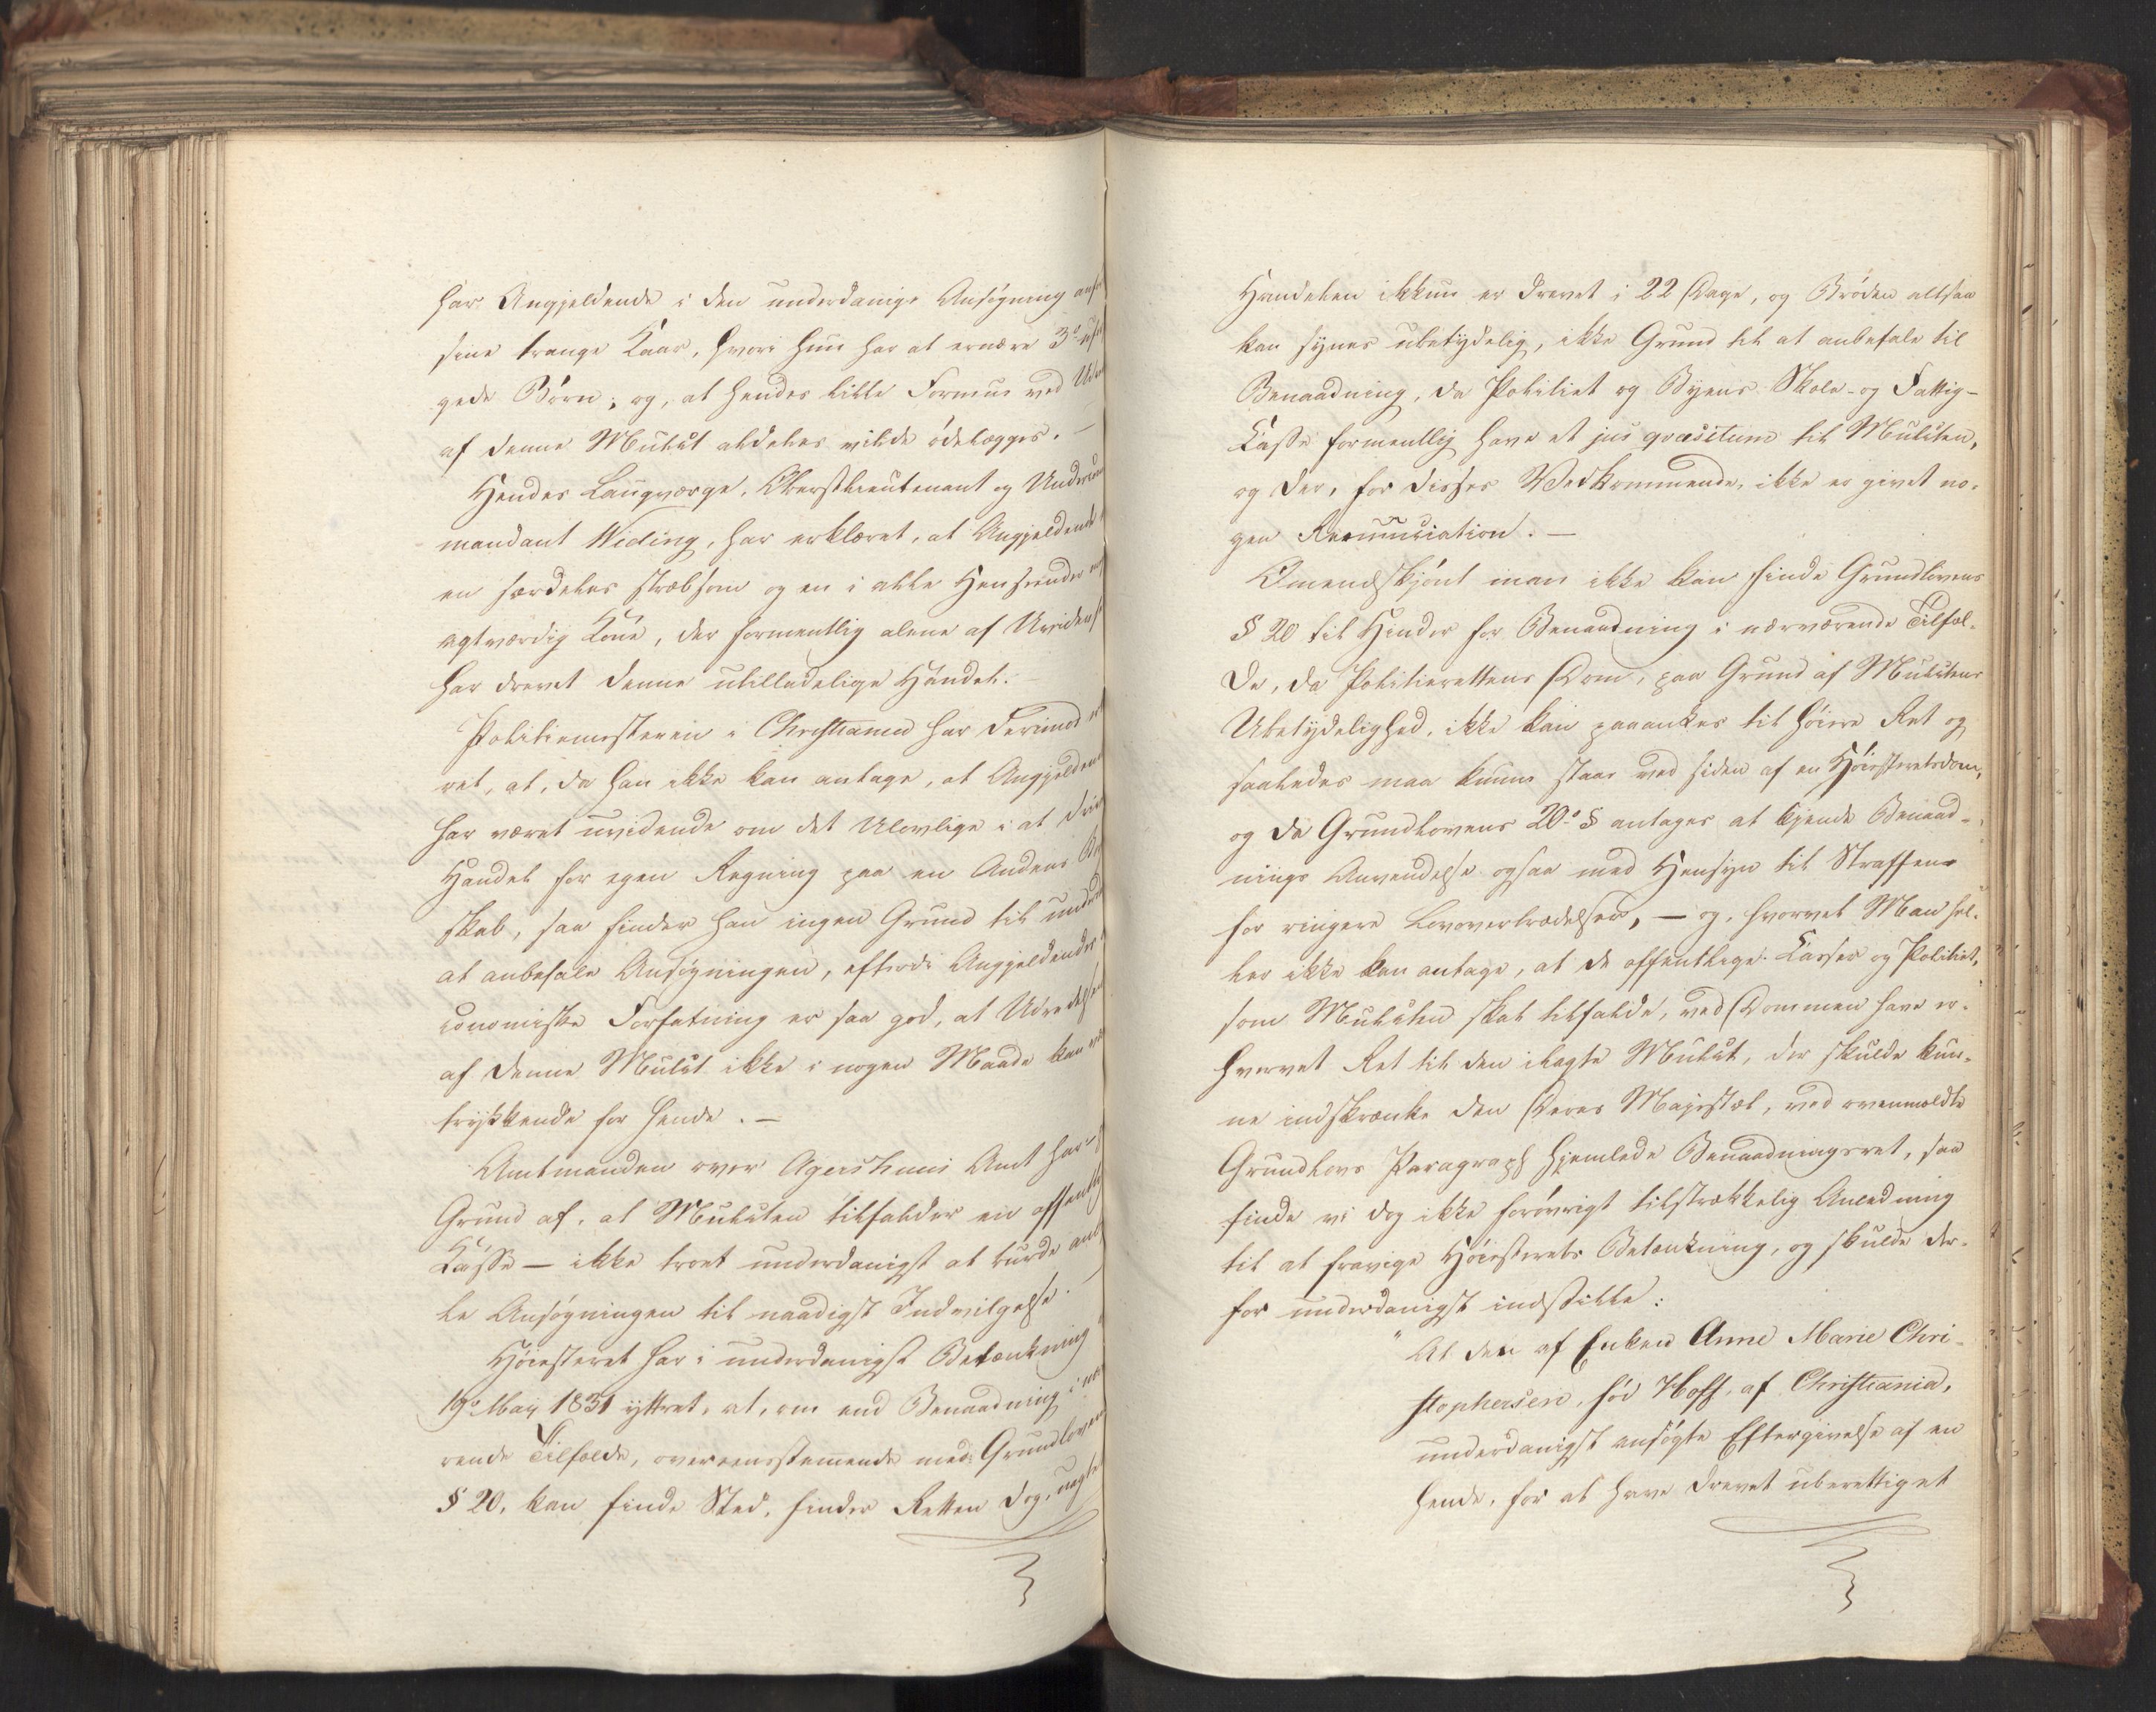 har Angjeldende i den underdanige Ansøgning anf
sine trange Kaar, hvori hun har at ernære 3de
gede Børn; og, at hendes lille Formue ved
af denne Mulct aldeles vilde ødelægges. —
Hendes Laugværge, Oberstlieutenant og Under
mandant Wieding, har erklæret, at Angjeldende
en særdeles stræbsom og en i alle Henseender
agtværdig Kone, der formentlig alene af Uviden
har drevet denne utilladelige Handel. —
Politiemesteren i Christiania har derimod
ret, at, da han ikke kan antage, at Angjelden
har været uvidende om det Ulovlige i at
Handel for egen Regning paa en Andens
skab, saa finder han ingen Grund til under
at anbefale Ansøgningen, efterdi Angjeldendes
conomiske Forfatning er saa god, at Udredelsen
af denne Mulct ikke i nogen Maade kan
trykkende for hende. —
Amtmanden over Agershuus Amt har
Grund af, at Mulcten tilfalder en offentl
Kasse — ikke troet underdanigst at turde anb
le Ansøgningen til naadigst Indvilgelse.
Høiesteret har i underdanigst Betænkning
19de May 1831 yttret, at, om end Benaadning i
rende Tilfælde, overeensstemmende med Grundloven
§ 20, kan finde Sted, finder Retten dog,
Handelen ikkun er drevet i 22 Dage, og Brøden altsaa
kan synes ubetydelig, ikke Grund til at anbefale til
Benaadning, da Politiet og Byens Skole- og Fattig-
Kasse formentlig have et jus qvæsitum til Mulcten,
og der, for disses Vedkommende, ikke er givet no-
gen Renunciation. —
Omendskjønt man ikke kan finde Grundlovens
§ 20 til Hinder for Benaadning i nærværende Tilfæl-
de, da Politierettens Dom, paa Grund af Mulctens
Ubetydelighed, ikke kan paaankes til høiere Ret og
saaledes maa kunne staae ved siden af en Høiesteretsdom,
og da Grundlovens 20de § antages at kjende Benaad-
nings Anvendelse ogsaa med Hensyn til Straffene
for ringere Lovovertrædelser, — og, hvorvel Man hel-
ler ikke kan antage, at de offentlige Kasser og Politiet,
som Mulcten skal tilfalde, ved Dommen have er-
hvervet Ret til den ilagte Mulct, der skulde kun-
ne indskrænke den Deres Majestæt, ved ovenmeldte
Grundlovs Paragraph hjemlede Benaadningsret, saa
finde vi dog ikke forøvrigt tilstrækkelig Anledning
til at fravige Høiesterets Betænkning, og skulde der-
for underdanigst indstille:
"At den af Enken Anne Marie Chri-
stophersen, fød Hoff, af Christiania,
underdanigst ansøgte Eftergivelse af en
hende, for at have drevet uberettiget